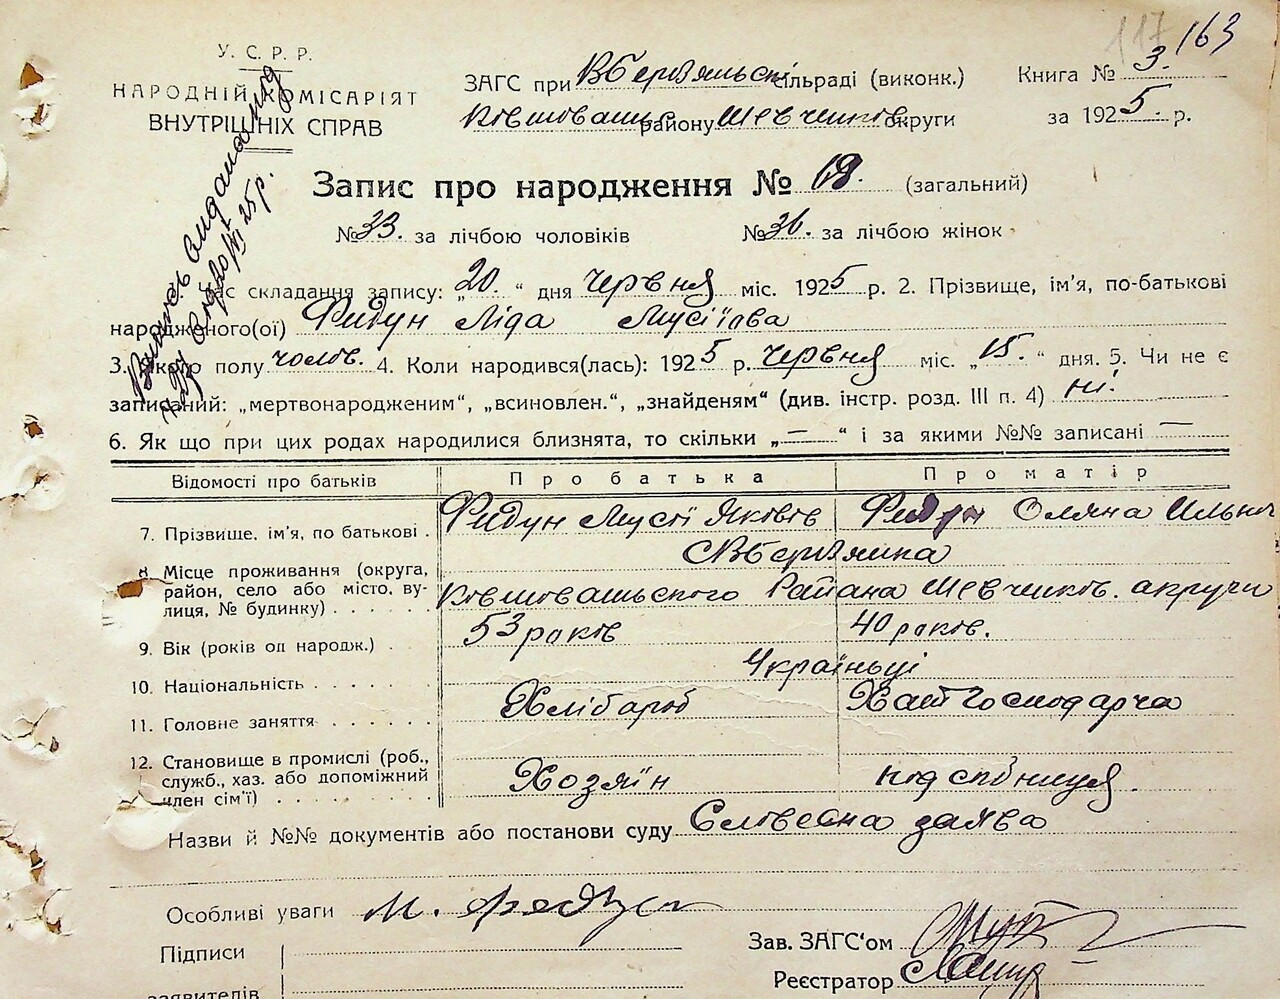 117 163
У. С. Р. Р.
НАРОДНІЙ КОМІСАРІЯТ
ВНУТРІШНІХ СПРАВ
ЗАГС при сільраді (виконк.) Книга № 3.
району Шевченків округи за 1925 р.
Запис про народження № (загальний)
№ 33. за лічбою чоловіків № 36. за лічбою жінок
складання запису: „20." дня червня міс. 1925 р. 2. Прізвище, ім'я, по-батькові
народженого(ої) Федун Ліда Мусіїова
3. Якого полу чолов. 4. Коли народився(лась): 1925 р. червня міс. „15." дня. 5. Чи не є
записаний: „мертвонародженим", „всиновлен.", „знайденям" (див. інстр. розд. III п. 4) ні.
6. Як що при цих родах народилися близнята, то скільки „—" і за якими №№ записані —
Відомості про батьків Про батька Про матір
7. Прізвище, ім'я, по батькові . Федун Мусій Яковів Федун Оляна
8. Місце проживання (округа,
район, село або місто, ву-
лиця, № будинку) . . . . .
9. Вік (років од народж.) . . 53 років 40 років.
10. Національність . . . . . . Україньці
11. Головне заняття . . . . . . Хлібароб Хат Господарча
12. Становище в промислі (роб.,
служб., хаз. або допоміжний
член сім'ї) . . . . . . . . . Хозяїн
Назви й №№ документів або постанови суду Словесна заява
Особливі уваги М. Федун
Підписи Зав. ЗАГС'ом
заявителів Реєстратор